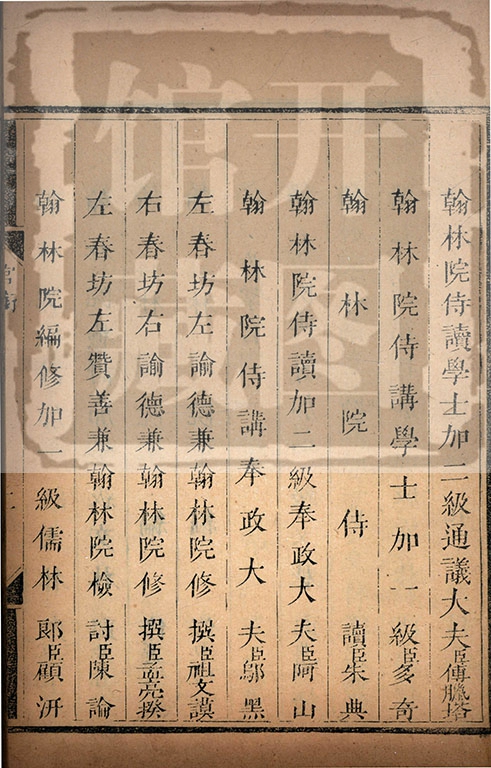 翰林院侍讀學士加二級通議大夫臣傅臘塔
翰林院侍講學士加一級臣多奇
翰林院侍讀臣朱典
翰林院侍讀加二級奉政大夫臣阿山
翰林院侍講奉政大夫臣鄔黑
左春坊左諭德兼翰林院修撰臣祖文謨
右春坊右諭德兼翰林院修撰臣孟亮揆
左春坊左贊善兼翰林院檢討臣陳論
翰林院編修加一級儒林郎臣顧汧
官銜
开图
馆藏